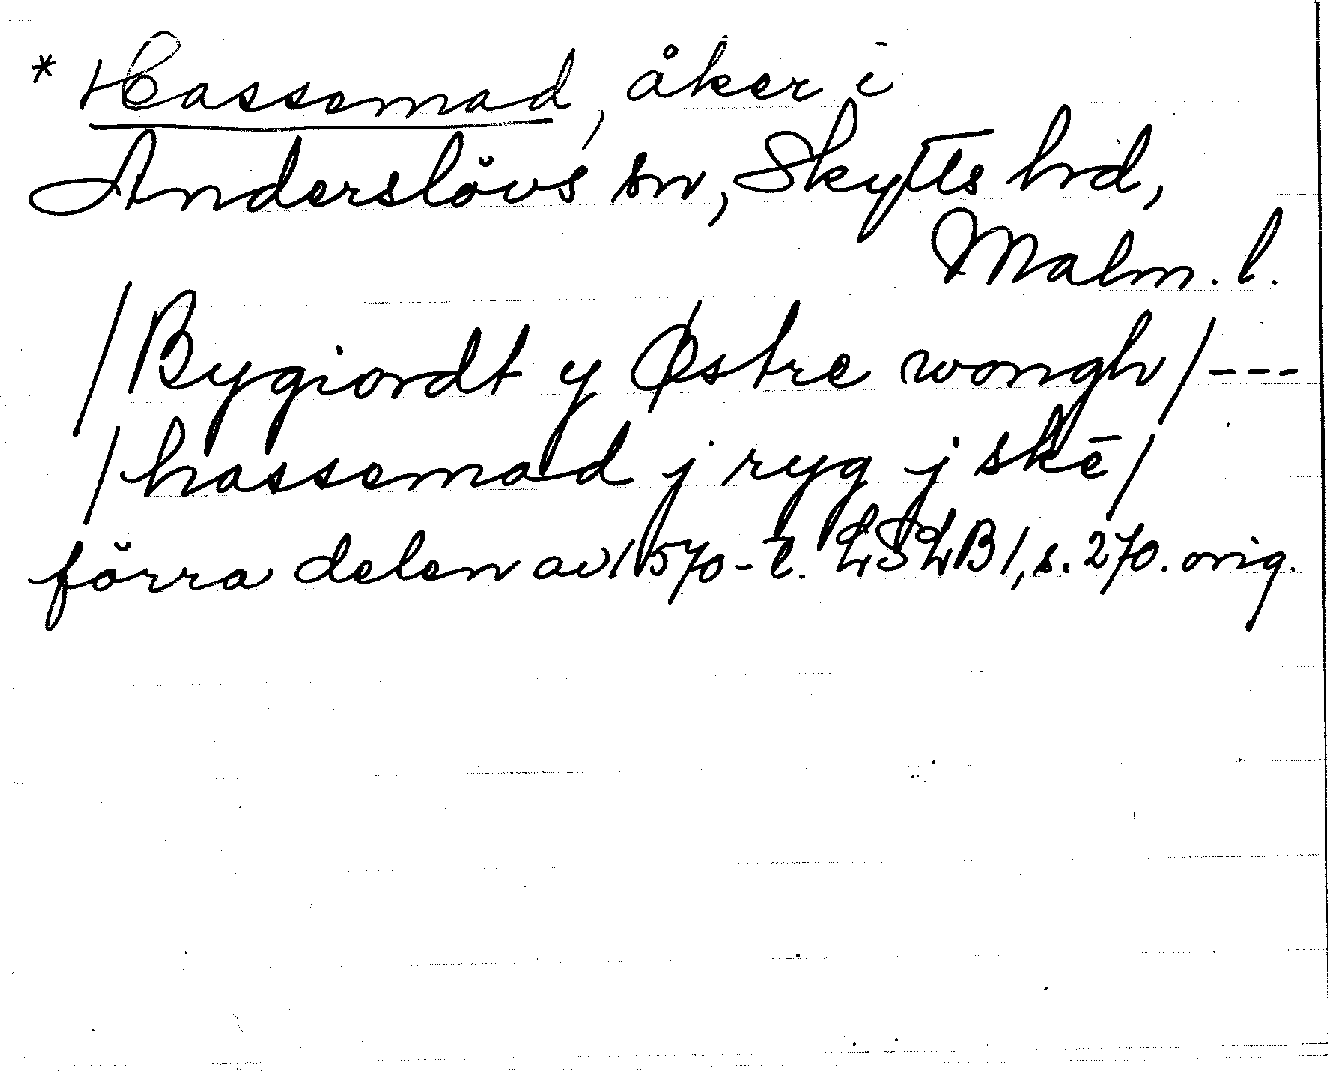 * Hassemad, åker i
Anderslövs sn, Skytts hd,
Malm. l.
/Bygiordt y Østre wongh/---
/hassemad j ryg j skē/
förra delen av 1570-t. LSLB1, s. 270. orig.